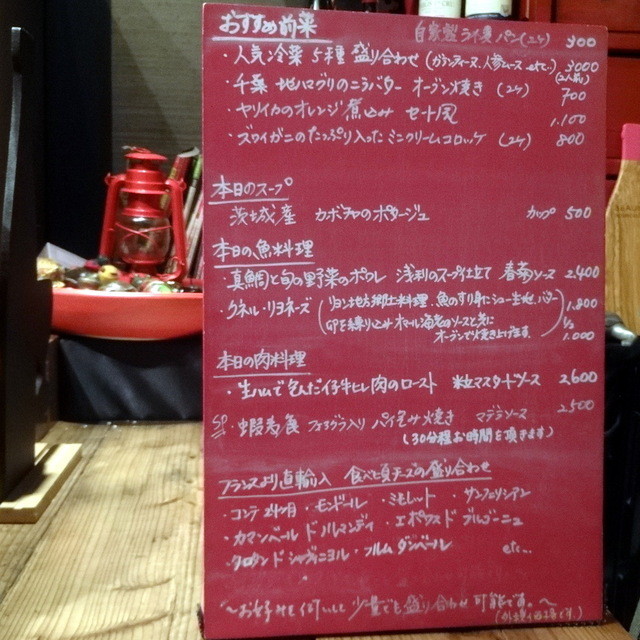 おすすめ前菜
自家製 ライ麦パン(2ヶ) 300
・人気冷菜5種盛り合わせ (ガランティーヌ、人参ムース etc…) 3000
(2人前)
・千葉 地ハマグリのニラバター オーブン焼き (2ヶ) 700
・ヤリイカのオレンジ煮込み セート風 1,100
・ズワイガニのたっぷり入ったミニクリームコロッケ (2ヶ) 800
本日のスープ
茨城産 カボチャのポタージュ カップ 500
本日の魚料理
・真鯛と旬の野菜のポワレ 浅利のスープ仕立て 春菊ソース 2,400
・クネル・リヨネーズ (リヨン地方郷土料理。魚のすり身にシュー生地、バター 1,800
を練り込みオマール海老のソースと共に 1/2
オーブンで焼き上げます。) 1.000
本日の肉料理
・生ハムで包んだ仔牛ヒレ肉のロースト 粒マスタードソース 2600
SP・蝦夷 フォアグラ入りパイ包み焼き マデラソース 2500
(30分程お時間を頂きます)
フランスより直輸入 食べ頃チーズの盛り合わせ
・コンテ 24ヶ月 ・モンドール ・ミモレット ・サンフェリシアン
・カマンベール ド ノルマンディ ・エポワス ド ブルゴーニュ
・クロタン ド シャヴィニヨル ・フルム ダンベール etc…
〜お好みを伺いして少量でも盛り合わせ可能です。〜